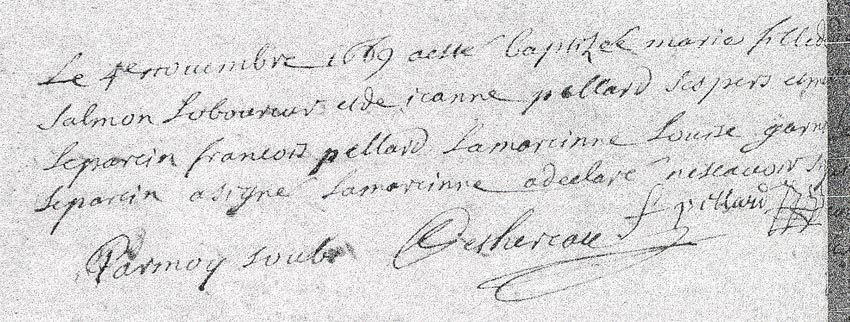 Le 4e novembre 1669 a esté baptizée marie fille d
Salmon Laboureur et de jeanne pellard ses pere et me
Le parein francois pellard La mareinne Louise garn
Le parein a signé La mareinne a declaré ne scavoir
Par moy soubs Deshereau f pillard